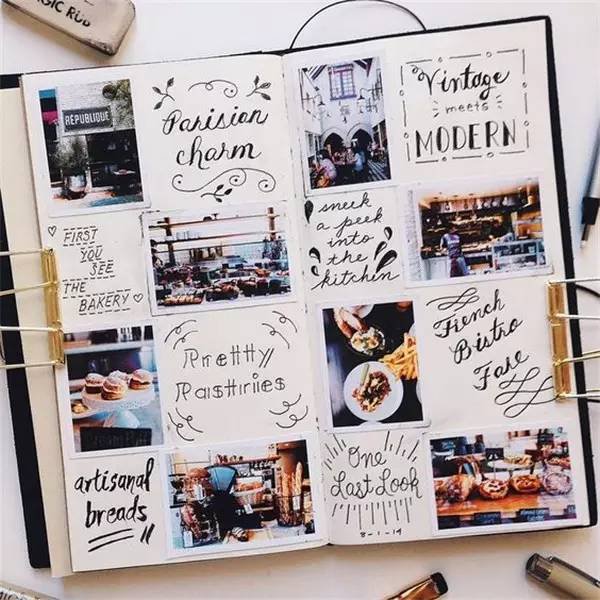 AGIC RUB
RÉPUBLIQUE
Parisian
charm
FIRST
YOU
SEE
THE
BAKERY
Pretty
Pastries
artisanal
breads
Vintage
meets
MODERN
sneek
a peek
into
the
kitchen
French
Bistro
Fare
One
Last Look
8-1-14